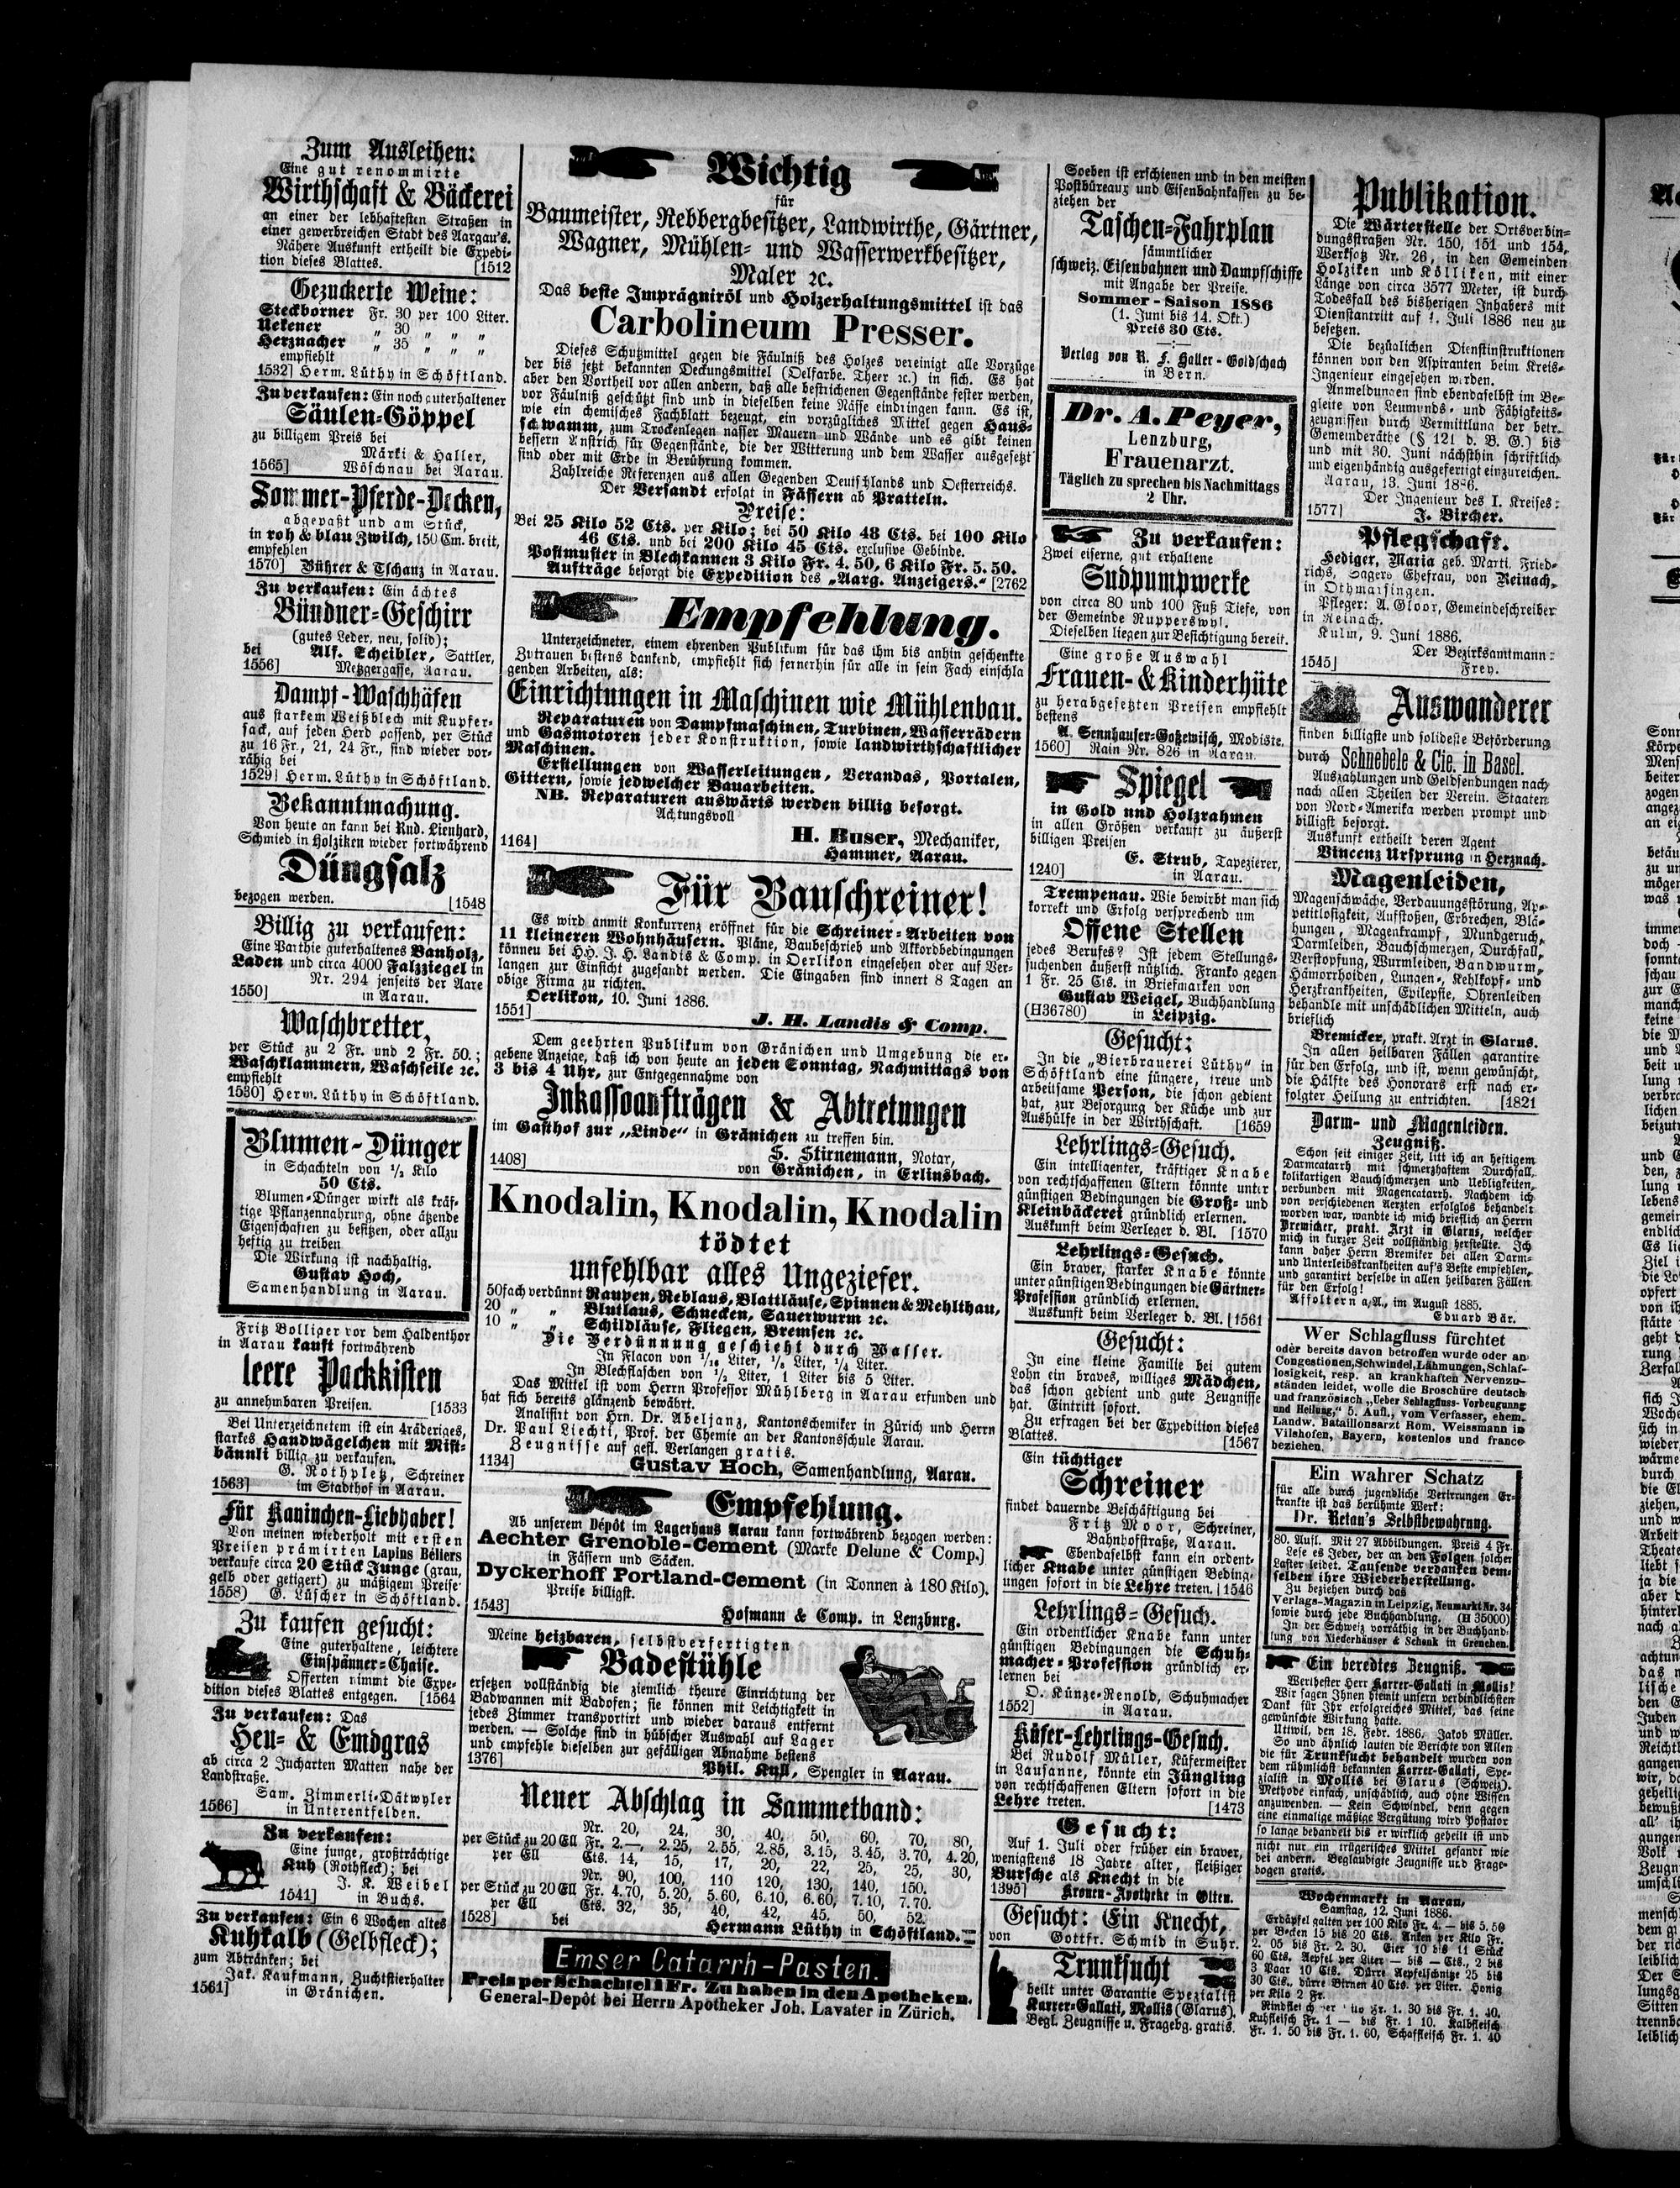 Zum Ausleihen:
Eine gut renommirte
Wirthschaft & Bäckerei
an einer der lebhaftesten Straßen in
einer gewerbreichen Stadt des Aargau's.
Nähere Auskunft ertheilt die Expedi-
tion dieses Blattes. [1512
Gezuckerte Weine:
Steckborner Fr. 30 per 100 Liter.
Uekener „ 30 „ „ „
Herznacher „ 35 „ „ „
empfiehlt
1532] Herm. Lüthy in Schöftland.
Zu verkaufen: Ein noch guterhaltener
Säulen-Göppel
zu billigem Preis bei
Märki & Haller,
1565] Wöschnau bei Aarau.
Sommer-Pferde-Decken,
abgepaßt und am Stück,
in roh & blau Zwilch, 150 Cm. breit,
empfehlen
1570] Bührer & Tschanz in Aarau.
Zu verkaufen: Ein ächtes
Bündner-Geschirr
(gutes Leder, neu, solid);
bei Alf. Scheibler, Sattler,
1556] Metzgergasse, Aarau.
Dampf-Waschhäfen
aus starkem Weißblech mit Kupfer-
sack, auf jeden Herd passend, per Stück
zu 16 Fr., 21, 24 Fr., sind wieder vor-
räthig bei
1529] Herm. Lüthy in Schöftland.
Bekanntmachung.
Von heute an kann bei Rud. Lienhard,
Schmied in Holziken wieder fortwährend
Düngsalz
bezogen werden. [1548
Billig zu verkaufen:
Eine Parthie guterhaltenes Bauholz,
Laden und circa 4000 Falzziegel in
Nr. 294 jenseits der Aare
1550] in Aarau.
Waschbretter,
per Stück zu 2 Fr. und 2 Fr. 50.;
Waschklammern, Waschseile ꝛc.
empfiehlt
1530] Herm. Lüthy in Schöftland.
Blumen-Dünger
in Schachteln von ½ Kilo
50 Cts.
Blumen-Dünger wirkt als kräf-
tige Pflanzennahrung, ohne ätzende
Eigenschaften zu besitzen, oder allzu
heftig zu treiben
Die Wirkung ist nachhaltig.
Gustav Hoch,
Samenhandlung in Aarau.
Fritz Bolliger vor dem Haldenthor
in Aarau kauft fortwährend
leere Packkisten
zu annehmbaren Preisen. [1533
Bei Unterzeichnetem ist ein 4räderiges,
starkes Handwägelchen mit Mist-
bännli billig zu verkaufen.
G. Rothpletz, Schreiner
1563] im Stadthof in Aarau.
Für Kaninchen-Liebhaber!
Von meinen wiederholt mit ersten
Preisen prämirten Lapins Béliers
verkaufe circa 20 Stück Junge (grau,
gelb oder getigert) zu mäßigem Preise
1558) G. Lüscher in Schöftland.
Zu kaufen gesucht:
Eine guterhaltene, leichtere
Einspänner-Chaise.
Offerten nimmt die Expe-
dition dieses Blattes entgegen. [1564
Zu verkaufen: Das
Heu- & Emdgras
ab circa 2 Jucharten Matten nahe der
Landstraße.
Sam. Zimmerli-Dätwyler
1566] in Unterentfelden.
Zu verkaufen:
Eine junge, großträchtige
Kuh (Rothfleck); bei
J. K. Weibel
1541] in Buchs.
Zu verkaufen: Ein 6 Wochen altes
Kuhkalb (Gelbfleck);
zum Abtränken; bei
Jak. Kaufmann, Zuchtstierhalter
1561] in Gränichen.
Wichtig
für
Baumeister, Rebbergbesitzer, Landwirthe, Gärtner,
Wagner, Mühlen- und Wasserwerkbesitzer,
Maler ꝛc.
Das beste Imprägniröl und Holzerhaltungsmittel ist das
Carbolineum Presser.
Dieses Schutzmittel gegen die Fäulniß des Holzes vereinigt alle Vorzüge
der bis jetzt bekannten Deckungsmittel (Oelfarbe. Theer ꝛc.) in sich. Es hat
aber den Vortheil vor allen andern, daß alle bestrichenen Gegenstände fester werden,
vor Fäulniß geschützt sind und in dieselben keine Nässe eindringen kann. Es ist,
wie ein chemisches Fachblatt bezeugt, ein vorzügliches Mittel gegen Haus-
schwamm, zum Trockenlegen nasser Mauern und Wände und es gibt keinen
bessern Anstrich für Gegenstände, die der Witterung und dem Wasser ausgesetzt
sind oder mit Erde in Berührung kommen.
Zahlreiche Referenzen aus allen Gegenden Deutschlands und Oesterreichs.
Der Versandt erfolgt in Fässern ab Pratteln.
Preise:
Bei 25 Kilo 52 Cts. per Kilo; bei 50 Kilo 48 Cts. bei 100 Kilo
46 Cts. und bei 200 Kilo 45 Cts. exclusive Gebinde.
Postmuster in Blechkannen 3 Kilo Fr. 4. 50, 6 Kilo Fr. 5. 50.
Aufträge besorgt die Expedition des „Aarg. Anzeigers." [2762
Empfehlung.
Unterzeichneter, einem ehrenden Publikum für das ihm bis anhin geschenkte
Zutrauen bestens dankend, empfiehlt sich fernerhin für alle in sein Fach einschla
genden Arbeiten, als:
Einrichtungen in Maschinen wie Mühlenbau.
Reparaturen von Dampfmaschinen, Turbinen, Wasserrädern
und Gasmotoren jeder Konstruktion, sowie landwirthschaftlicher
Maschinen.
Erstellungen von Wasserleitungen, Verandas, Portalen,
Gittern, sowie jedwelcher Bauarbeiten.
NB. Reparaturen auswärts werden billig besorgt.
Achtungsvoll
H. Buser, Mechaniker,
1164] Hammer, Aarau.
Für Bauschreiner!
Es wird anmit Konkurrenz eröffnet für die Schreiner-Arbeiten von
11 kleineren Wohnhäusern. Pläne, Baubeschrieb und Akkordbedingungen
können bei HH. J. H. Landis & Comp. in Oerlikon eingesehen oder auf Ver-
langen zur Einsicht zugesandt werden. Die Eingaben sind innert 8 Tagen an
obige Firma zu richten.
Oerlikon, 10. Juni 1886.
1551] J. H. Landis & Comp.
Dem geehrten Publikum von Gränichen und Umgebung die er-
gebene Anzeige, daß ich von heute an jeden Sonntag, Nachmittags von
3 bis 4 Uhr, zur Entgegennahme von
Inkassoaufträgen & Abtretungen
im Gasthof zur „Linde" in Gränichen zu treffen bin.
S. Stirnemann, Notar,
1408] von Gränichen, in Erlinsbach.
Knodalin, Knodalin, Knodalin
tödtet
unfehlbar alles Ungeziefer.
50fach verdünnt Raupen, Reblaus, Blattläuse, Spinnen & Mehlthau,
20 „ „ Blutlaus, Schnecken, Sauerwurm ꝛc.
10 „ „ Schildläuse, Fliegen, Bremsen ꝛc.
Die Verdünnung geschieht durch Wasser.
In Flacon von 1/16 Liter, 1/8 Liter, 1/4 Liter.
In Blechflaschen von ½ Liter, 1 Liter bis 5 Liter.
Das Mittel ist vom Herrn Professor Mühlberg in Aarau erfunden und
hat sich bereits glänzend bewährt.
Analisirt von Hrn. Dr. Abeljanz, Kantonschemiker in Zürich und Herrn
Dr. Paul Liechti, Prof. der Chemie an der Kantonsschule Aarau.
Zeugnisse auf gefl. Verlangen gratis.
1134] Gustav Hoch, Samenhandlung, Aarau.
Empfehlung.
Ab unserem Dépôt im Lagerhaus Aarau kann fortwährend bezogen werden:
Aechter Grenoble-Cement (Marke Delune & Comp.)
in Fässern und Säcken.
Dyckerhoff Portland-Cement (in Tonnen à 180 Kilo).
Preise billigst.
1543] Hofmann & Comp. in Lenzburg.
Meine heizbaren, selbstverfertigten
Badestühle
ersetzen vollständig die ziemlich theure Einrichtung der
Badwannen mit Badofen; sie können mit Leichtigkeit in
jedes Zimmer transportirt und wieder daraus entfernt
werden. — Solche sind in hübscher Auswahl auf Lager
und empfehle dieselben zur gefälligen Abnahme bestens
1376] Phil. Kull, Spengler in Aarau.
Neuer Abschlag in Sammetband:
Nr. 20, 24, 30, 40, 50, 60, 70, 80,
per Stück zu 20 Ell Fr. 2.—, 2.25, 2.55, 2.85, 3.15, 3.45, 3.70, 4.20,
per Ell Cts. 14, 15, 17, 20, 22, 25, 25, 30,
Nr. 90, 100, 110 120, 130, 140, 150.
per Stück zu 20 Ell Fr. 4.70, 5.20, 5.60, 6.10, 6.60, 7.10, 7.70.
per Ell Cts. 32, 35, 40, 42, 45. 50, 52.
1528] bei Hermann Lüthy in Schöftland.
Emser Catarrh-Pasten.
Preis per Schachtel 1 Fr. Zu haben in den Apotheken.
General-Depôt bei Herrn Apotheker Joh. Lavater in Zürich.
Soeben ist erschienen und in den meisten
Postbüreaux und Eisenbahnkassen zu be-
ziehen der
Taschen-Fahrplan
sämmtlicher
schweiz. Eisenbahnen und Dampfschiffe
mit Angabe der Preise.
Sommer-Saison 1886
(1. Juni bis 14. Okt.)
Preis 30 Cts.
Verlag von R. F. Haller-Goldschach
in Bern.
Dr. A. Peyer,
Lenzburg,
Frauenarzt.
Täglich zu sprechen bis Nachmittags
2 Uhr.
Zu verkaufen:
Zwei eiserne, gut erhaltene
Sudpumpwerke
von circa 80 und 100 Fuß Tiefe, von
der Gemeinde Rupperswyl.
Dieselben liegen zur Besichtigung bereit.
Eine große Auswahl
Frauen- & Kinderhüte
zu herabgesetzten Preisen empfiehlt
bestens
A. Sennhauser-Goßewisch, Modiste.
1560] Rain Nr. 826 in Aarau.
Spiegel
in Gold und Holzrahmen
in allen Größen verkauft zu äußerst
billigen Preisen
E. Strub, Tapezierer,
1240] in Aarau.
Trempenau. Wie bewirbt man sich
korrekt und Erfolg versprechend um
Offene Stellen
jedes Berufes? Ist jedem Stellungs-
suchenden äußerst nützlich. Franko gegen
1 Fr. 25 Cts. in Briefmarken von
Gustav Weigel, Buchhandlung
(H36780) in Leipzig.
Gesucht:
In die „Bierbrauerei Lüthy" in
Schöftland eine jüngere, treue und
arbeitsame Person, die schon gedient
hat, zur Besorgung der Küche und zur
Aushülfe in der Wirthschaft. [1659
Lehrlings-Gesuch.
Ein intelligenter, kräftiger Knabe
von rechtschaffenen Eltern könnte unter
günstigen Bedingungen die Groß- und
Kleinbäckerei gründlich erlernen.
Auskunft beim Verleger d. Bl. [1570
Lehrlings-Gesuch.
Ein braver, starker Knabe könnte
unter günstigen Bedingungen die Gärtner-
Profession gründlich erlernen.
Auskunft beim Verleger d. Bl. [1561
Gesucht:
In eine kleine Familie bei gutem
Lohn ein braves, williges Mädchen,
das schon gedient und gute Zeugnisse
hat. Eintritt sofort.
Zu erfragen bei der Expedition dieses
Blattes. [1567
Ein tüchtiger
Schreiner
findet dauernde Beschäftigung bei
Fritz Moor, Schreiner,
Bahnhofstraße, Aarau.
Ebendaselbst kann ein ordent-
licher Knabe unter günstigen Beding-
ungen sofort in die Lehre treten. [1546
Lehrlings-Gesuch.
Ein ordentlicher Knabe kann unter
günstigen Bedingungen die Schuh-
macher-Profession gründlich er-
lernen bei
O. Künze-Renold, Schuhmacher
1552] in Aarau.
Küfer-Lehrlings-Gesuch.
Bei Rudolf Müller, Küfermeister
in Lausanne, könnte ein Jüngling
von rechtschaffenen Eltern sofort in die
Lehre treten. [1473
Gesucht:
Auf 1. Juli oder früher ein braver,
wenigstens 18 Jahre alter, fleißiger
Bursche als Knecht in die
1395] Kronen-Apotheke in Olten.
Gesucht: Ein Knecht,
von Gottfr. Schmid in Suhr.
Trunksucht
heilt unter Garantie Spezialist
Karrer-Gallati, Mollis (Glarus).
Begl. Zeugnisse u. Fragebg. gratis.
Publikation.
Die Wärterstelle der Ortsverbin-
dungsstraßen Nr. 150, 151 und 154,
Werksatz Nr. 26, in den Gemeinden
Holziken und Kölliken, mit einer
Länge von circa 3577 Meter, ist durch
Todesfall des bisherigen Inhabers mit
Dienstantritt auf 1. Juli 1886 neu zu
besetzen.
Die bezüglichen Dienstinstruktionen
können von den Aspiranten beim Kreis-
Ingenieur eingesehen werden.
Anmeldungen sind ebendaselbst im Be-
gleite von Leumunds- und Fähigkeits-
zeugnissen durch Vermittlung der betr.
Gemeinderäthe (§ 121 d. B. G.) bis
und mit 30. Juni nächsthin schriftlich
und eigenhändig ausgefertigt einzureichen.
Aarau, 13. Juni 1886.
Der Ingenieur des I. Kreises:
1577] J. Bircher.
Pflegschaft.
Hediger, Maria geb. Marti, Fried-
richs, Sagers Ehefrau, von Reinach,
in Othmarsingen.
Pfleger: A. Gloor, Gemeindeschreiber
in Reinach.
Kulm, 9. Juni 1886.
Der Bezirksamtmann:
1545] Frey.
Auswanderer
finden billigste und solideste Beförderung
durch Schnebele & Cie. in Basel.
Auszahlungen und Geldsendungen nach
nach allen Theilen der Verein. Staaten
von Nord-Amerika werden prompt und
billigst besorgt.
Auskunft ertheilt deren Agent
Vincenz Ursprung in Herznach.
Magenleiden,
Magenschwäche, Verdauungsstörung, Ap-
petitlosigkeit, Aufstoßen, Erbrechen, Blä-
hungen, Magenkrampf, Mundgeruch,
Darmleiden, Bauchschmerzen, Durchfall,
Verstopfung, Wurmleiden, Bandwurm,
Hämorrhoiden, Lungen-, Kehlkopf- und
Herzkrankheiten, Epilepsie, Ohrenleiden
behandle mit unschädlichen Mitteln, auch
brieflich
Bremicker, prakt. Arzt in Glarus.
In allen heilbaren Fällen garantire
für den Erfolg, und ist, wenn gewünscht,
die Hälfte des Honorars erst nach er-
folgter Heilung zu entrichten. [1821
Darm- und Magenleiden.
Zeugniß.
Schon seit einiger Zeit, litt ich an heftigem
Darmcatarrh mit schmerzhaftem Durchfall,
kolikartigen Bauchschmerzen und Uebligkeiten,
verbunden mit Magencatarrh. Nachdem ich
von verschiedenen Aerzten erfolglos behandelt
worden war, wandte ich mich brieflich an Herrn
Bremicker, prakt. Arzt in Glarus, welcher
mich in kurzer Zeit vollständig herstellte. Ich
kann daher Herrn Bremiker bei allen Darm-
und Unterleibskrankheiten auf's Beste empfehlen,
und garantirt derselbe in allen heilbaren Fällen
für den Erfolg!
Affoltern a/A., im August 1885.
Eduard Bär.
Wer Schlagfluss fürchtet
oder bereits davon betroffen wurde oder an
Congestionen, Schwindel, Lähmungen, Schlaf-
losigkeit, resp. an krankhaften Nervenzu-
ständen leidet, wolle die Broschüre deutsch
und französisch „Ueber Schlagfluss-Vorbeugung
und Heilung," 5. Aufl., vom Verfasser, ehem.
Landw. Bataillonsarzt Rom. Weissmann in
Vilshofen, Bayern, kostenlos und franco
beziehen.
Ein wahrer Schatz
für alle durch jugendliche Verirrungen Er-
krankte ist das berühmte Werk:
Dr. Retau's Selbstbewahrung.
80. Aufl. Mit 27 Abbildungen. Preis 4 Fr.
Lese es Jeder, der an den Folgen solcher
Laster leidet. Tausende verdanken dem-
selben ihre Wiederherstellung.
Zu beziehen durch das
Verlags-Magazin in Leipzig, Neumarkt Nr. 34
sowie durch jede Buchhandlung. (H 35000)
In der Schweiz vorräthig in der Buchhand-
lung von Niederhäuser & Schenk in Grenchen.
Ein beredtes Zeugniß.
Werthester Herr Karrer-Gallati in Mollis!
Wir sagen Ihnen hiemit unsern verbindlichsten
Dank für Ihr erfolgreiches Mittel, das seine
gewünschte Wirkung hatte.
Uttwil, den 18. Febr. 1886. Jakob Müller.
So und ähnlich lauten die Berichte von Allen
die für Trunksucht behandelt wurden von
dem rühmlichst bekannten Karrer-Gallati, Spe-
zialist in Mollis bei Glarus (Schweiz).
Methode einfach, unschädlich, auch ohne Wissen
anzuwenden. — Kein Schwindel, denn gegen
eine einmalige mäßige Vergütung wird Postator
so lange behandelt bis er wirklich geheilt ist und
nicht nur ein trügerisches Mittel gesandt wie
bei andern. Beglaubigte Zeugnisse und Frage-
bogen gratis.
Wochenmarkt in Aarau,
Samstag, 12. Juni 1886.
Erdäpfel galten per 100 Kilo Fr. 4. — bis 5. 50
per Becken 15 bis 20 Cts. Anken per Kilo Fr.
2. 05 bis Fr. 2. 30. Eier 10 bis 11 Stück
60 Cts. Aepfel per Liter — bis — Cts., 2 bis
3 Paar 10 Cts. Dürre Aepfelschnitze 25 bis
30 Cts. dürre Birnen 40 Cts. per Liter. Honig
per Kilo 2 Fr.
Rindfleisch per Kilo Fr. 1. 30 bis Fr. 1. 40.
Kuhfleisch Fr. 1 — bis Fr. 1 10. Kalbfleisch
Fr. 1. 50 bis Fr. 1. 60, Schaffleisch Fr. 1. 40